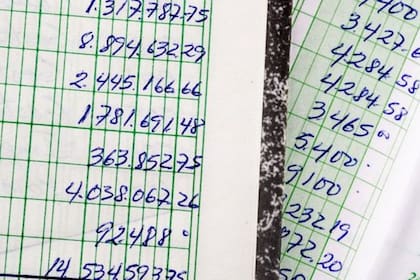 1.317.787.75
8.894.632.29
2.445.166.66
1.781.691.48
363.852.75
4.038.067.26
92488°
3.427.6
4284.58
4284.58
3465 00
5.400.
9100.
232.19
72.20